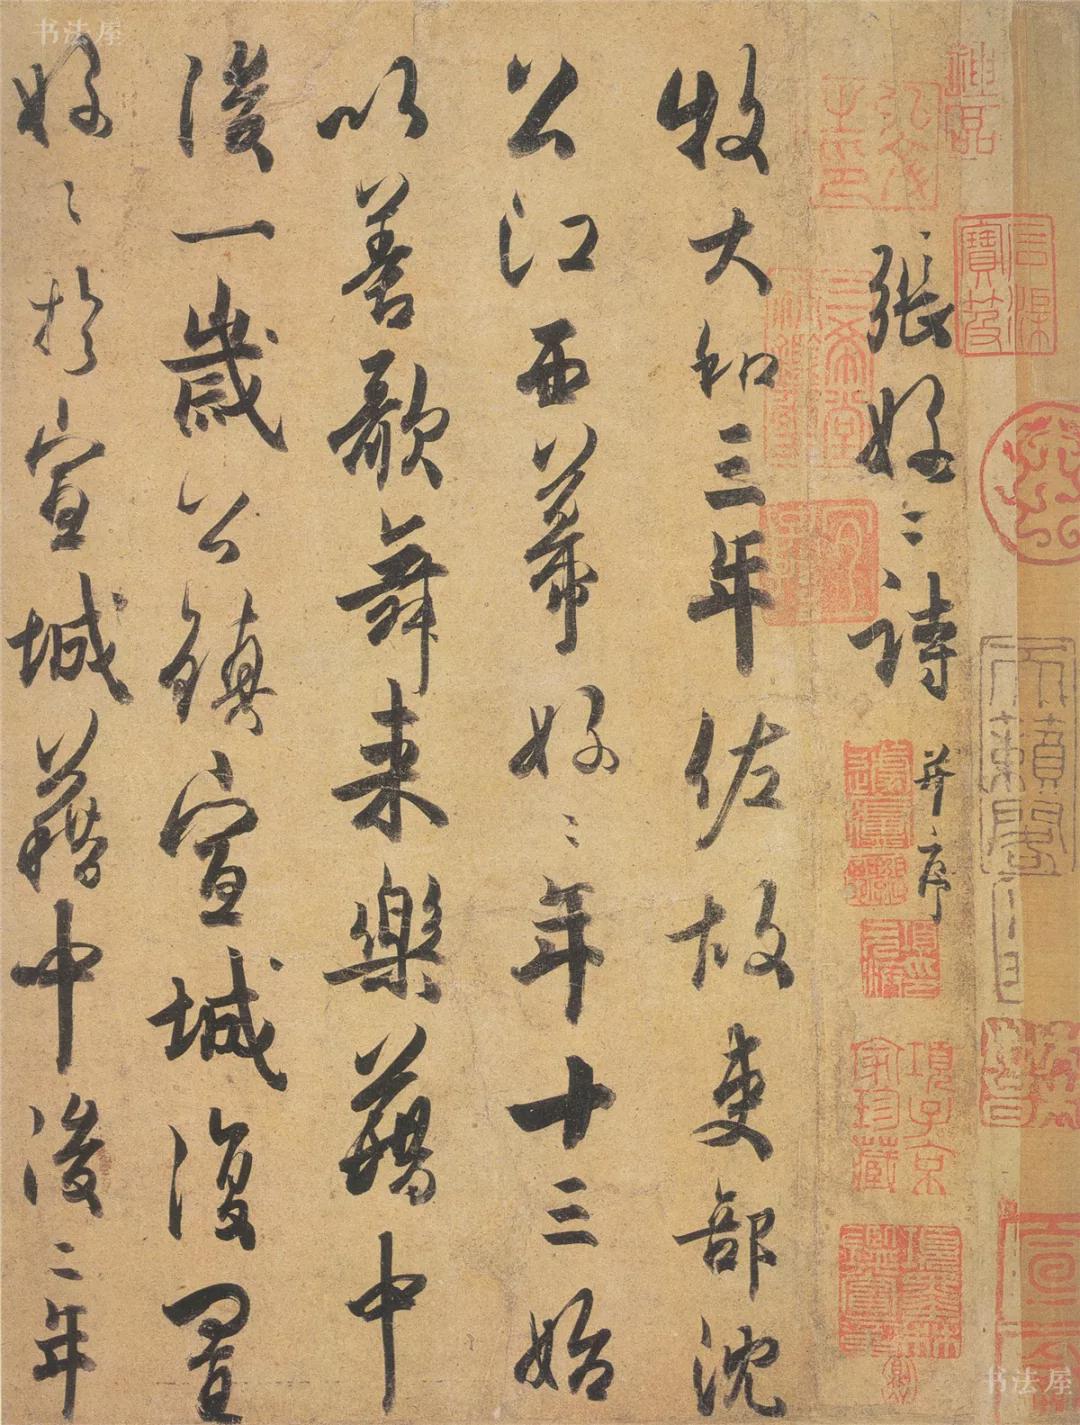 張好〻詩 并序
牧大和三年佐故吏部沈
公江西幕好〻年十三始
以善歌舞来樂籍中
後一歲公鎮宣城復置
好〻於宣城籍中後二年
項子京家珍藏
三希堂
天籟閣
书法屋
书法屋